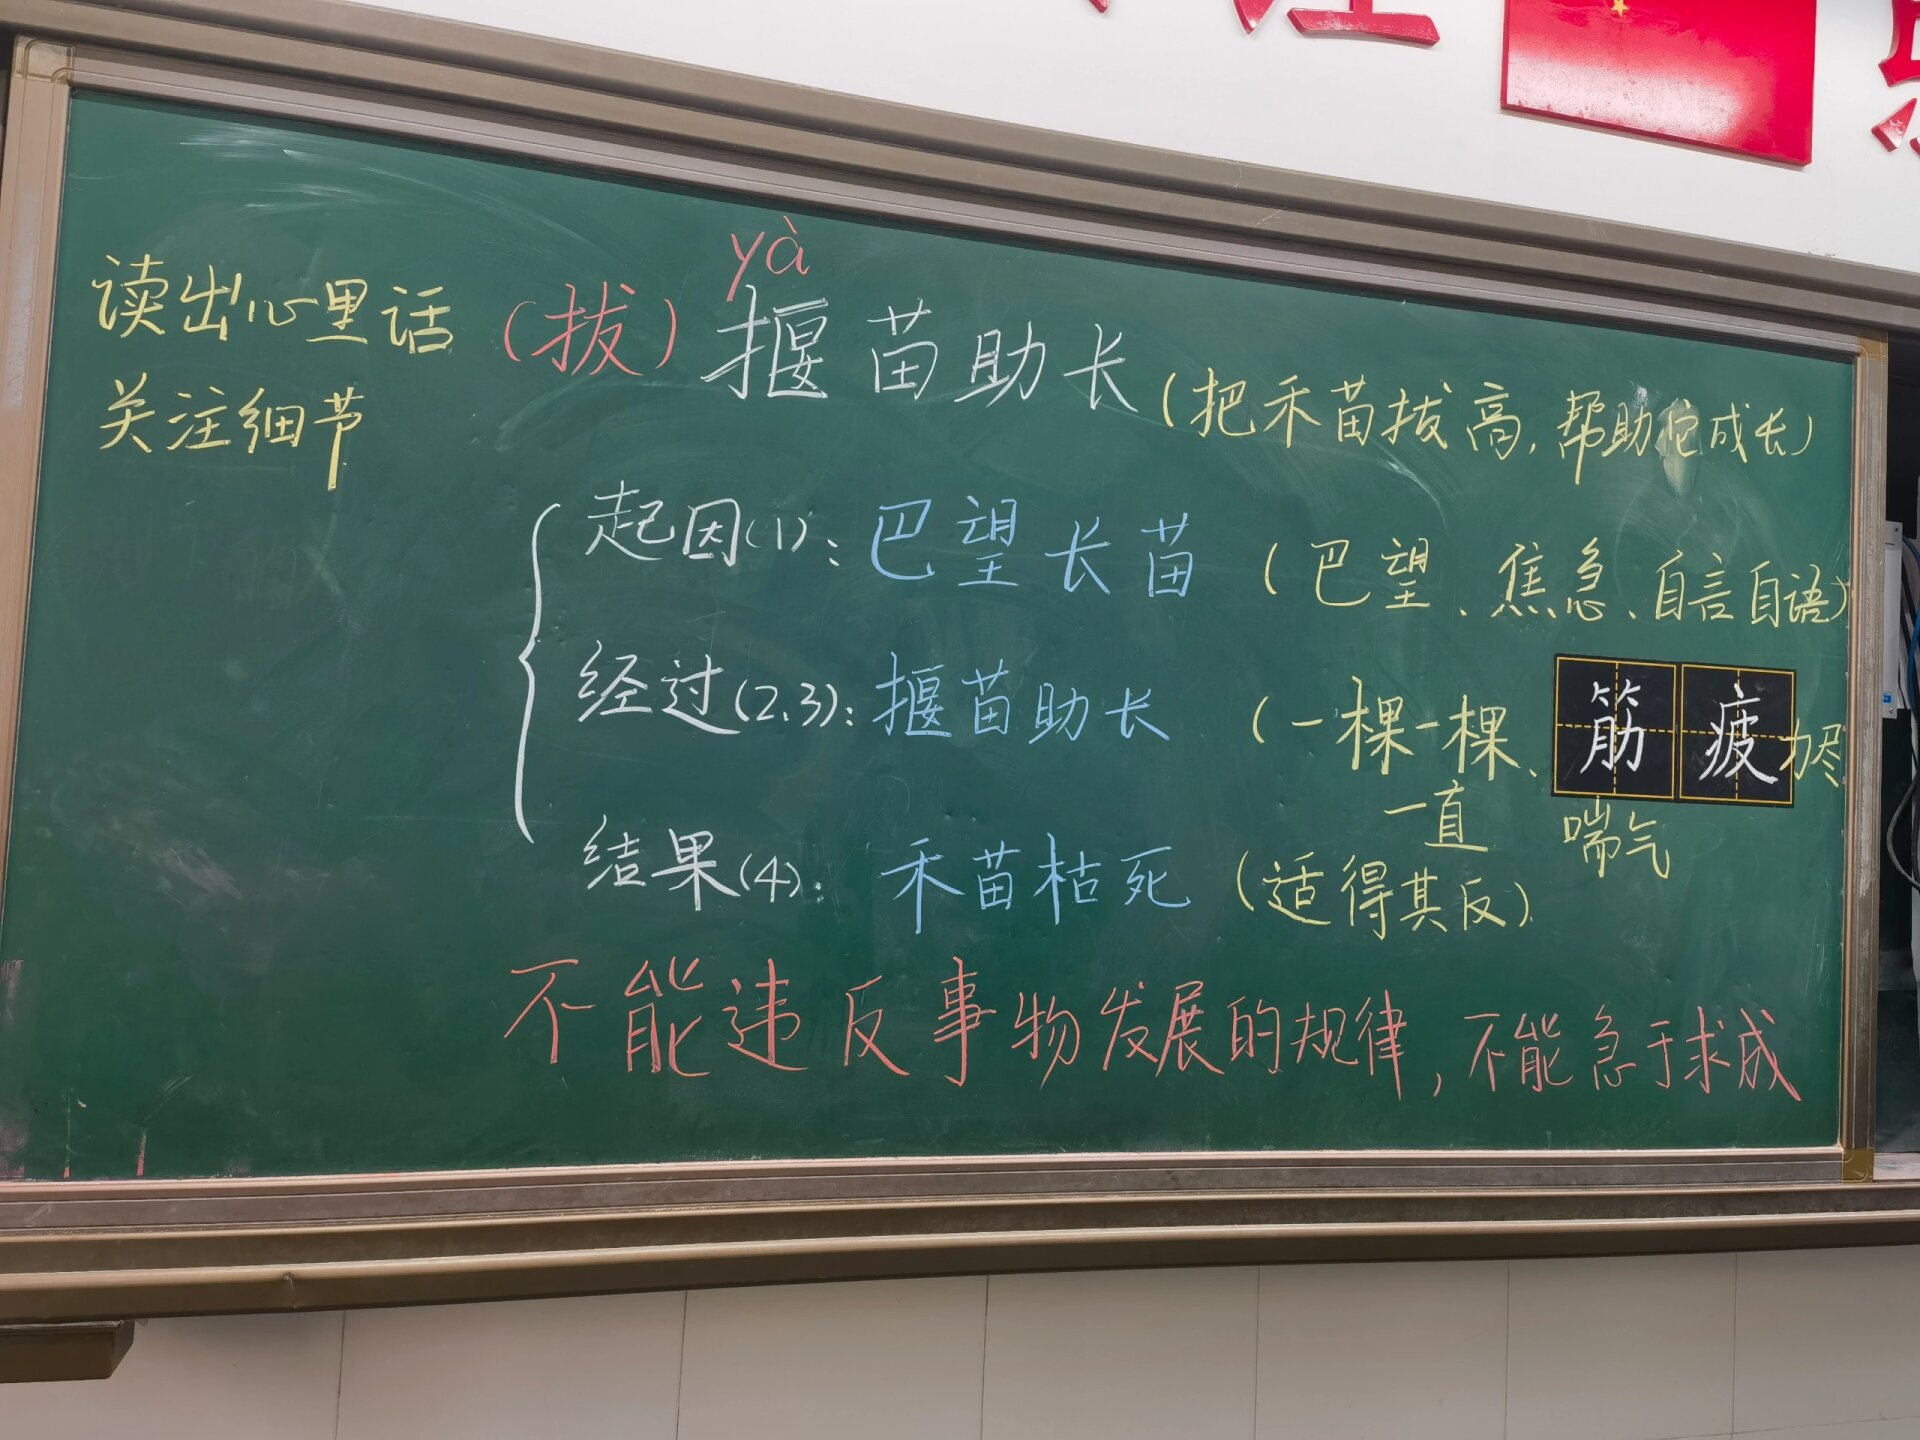 yà
读出心里话 (拔) 揠苗助长 (把禾苗拔高,帮助它成长)
关注细节
起因(1):巴望长苗 (巴望、焦急、自言自语)
经过(2、3):揠苗助长 (一棵一棵、筋疲力尽
一直 喘气
结果(4):禾苗枯死 (适得其反)
不能违反事物发展的规律,不能急于求成